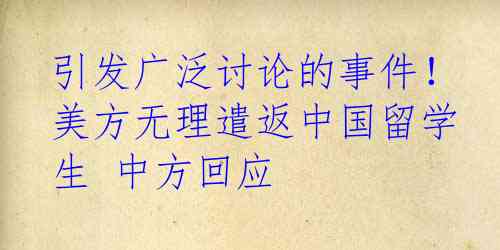 引发广泛讨论的事件！
美方无理遣返中国留学
生 中方回应